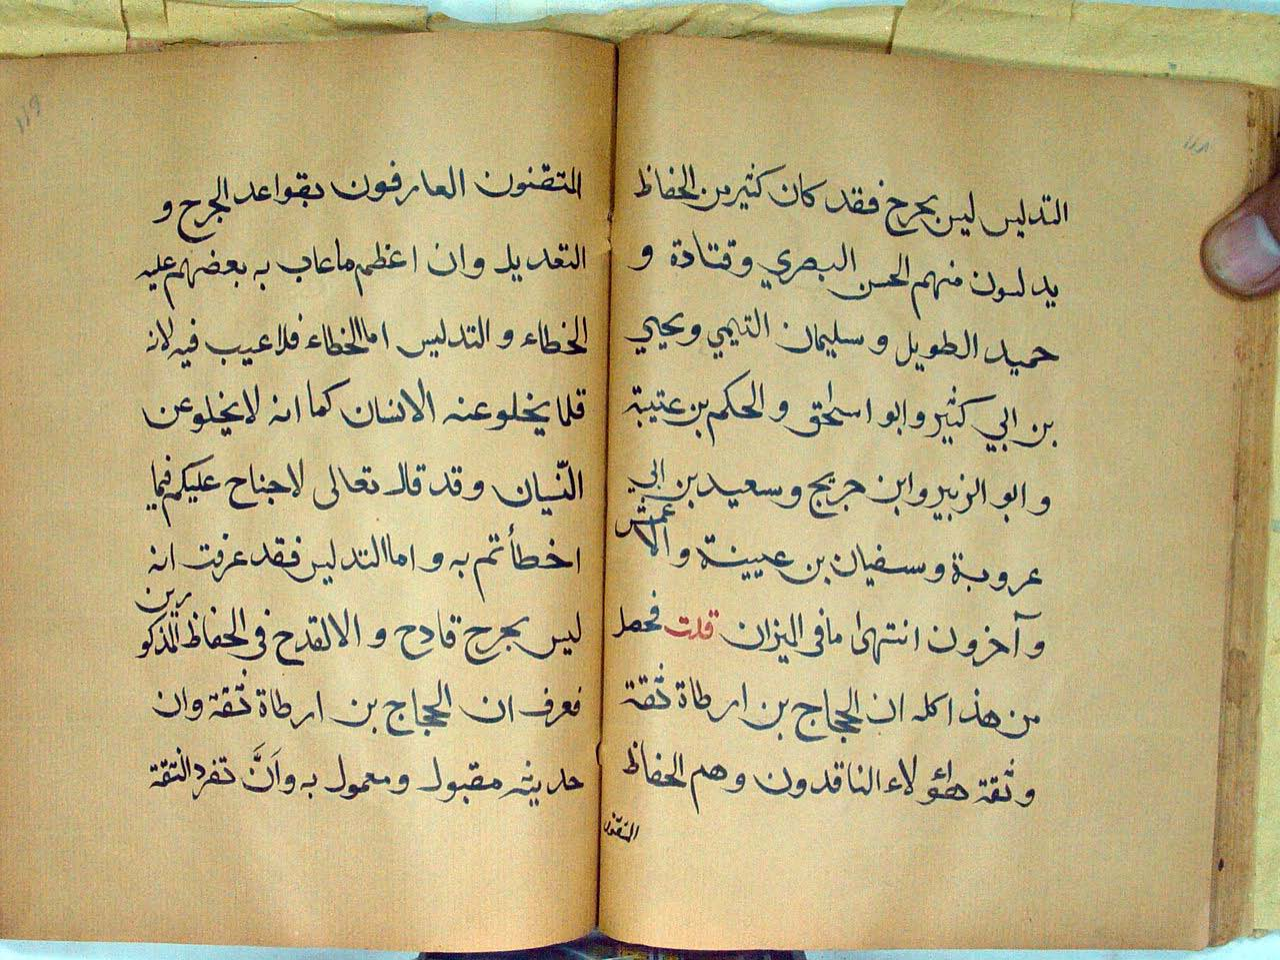 التدليس ليس بجرح فقد كان كثير من الحفاظ
يدلسون منهم الحسن البصري وقتادة و
حميد الطويل وسليمان التيمي ويحيي
بن ابي كثير وابو اسحاق والحكم بن عتيبة
وابو الزبير وابن جريج وسعيد بن ابي
عروبة وسفيان بن عيينة والاعمش
وآخرون انتهى ما في الميزان قلت فحصل
من هذا كله ان الحجاج بن ارطاة ثقة
وثقه هؤلاء الناقدون وهم الحفاظ
المتقنون
المتقنون العارفون بقواعد الجرح و
التعديل وان اعظم ما عاب به بعضهم عليه
الخطاء والتدليس اما الخطاء فلا عيب فيه لانه
قلما يخلو عنه الانسان كما انه لا يخلو عن
النّسيان وقد قال تعالى لا جناح عليكم فيما
اخطأتم به واما التدليس فقد عرفت انه
ليس بجرح قادح والا لقدح في الحفاظ المذكورين
فعرف ان الحجاج بن ارطاة ثقة وان
حديثه مقبول ومعمول به وأنَّ تفرد الثقة